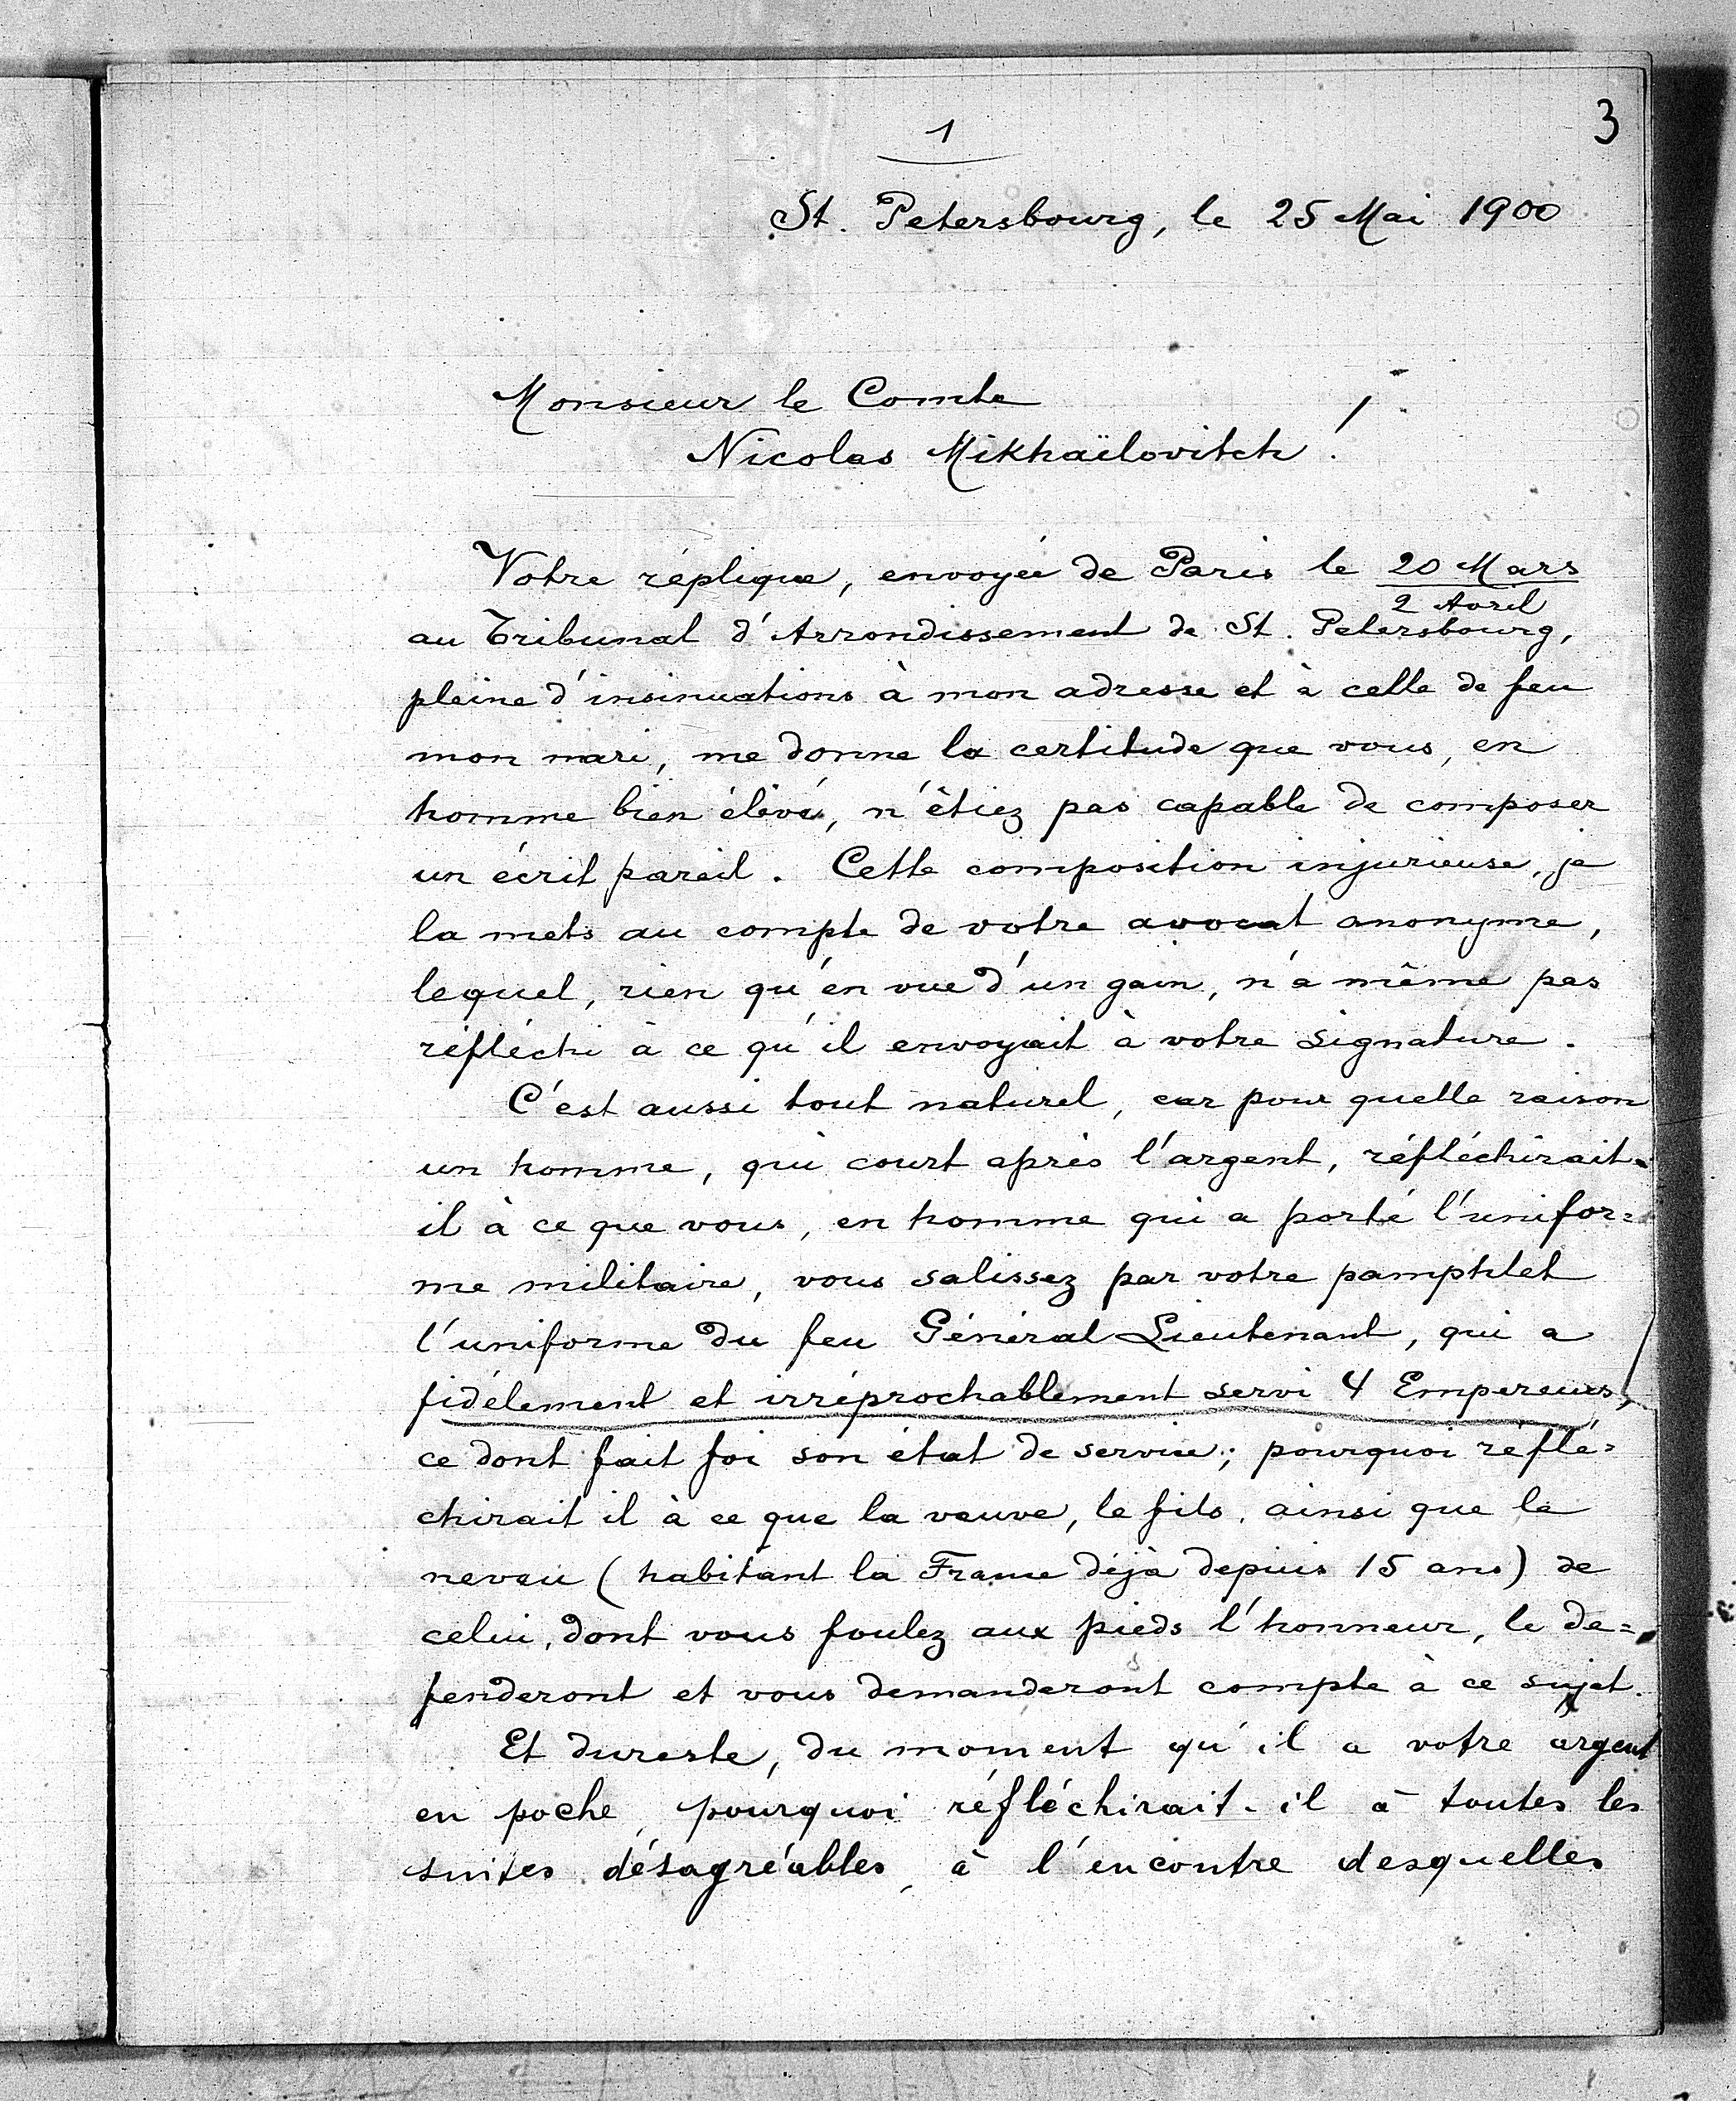 3
1
St. Petersbourg, le 25 Mai 1900
Monsieur le Comte
Nicolas Mikhaïlovitch!
Votre réplique, envoyée de Paris le 20 Mars
2 Avril
au Tribunal d'Arrondissement de St. Petersbourg,
pleine d'insinuations à mon adresse et à celle de feu
mon mari, me donne la certitude que vous, en
homme bien élévé, n'êtiez pas capable de composer
un écrit pareil. Cette composition injurieuse, je
la mets au compte de votre avocat anonyme,
lequel, rien qu'en vue d'un gain, n'a même pas
réfléchi à ce qu'il envoyait à votre signature.
C'est aussi tout naturel, car pour quelle raison
un homme, qui court après l'argent, réfléchirait-
il à ce que vous, en homme qui a porté l'unifor=
me militaire, vous salissez par votre pamphlet
l'uniforme du feu Général Lieutenant, qui a
fidélement et irréprochablement servi 4 Empereurs,
ce dont fait foi son état de service; pourquoi réflé=
chirait il à ce que la veuve, le fils, ainsi que le
neveu (habitant la France déjà depuis 15 ans) de
celui, dont vous foulez aux pieds l'honneur, le de=
fenderont et vous demanderont compte à ce sujet.
Et dureste, du moment qu'il a votre argent
en poche, pourquoi réfléchirait-il à toutes les
suites désagréables, à l'encontre desquelles